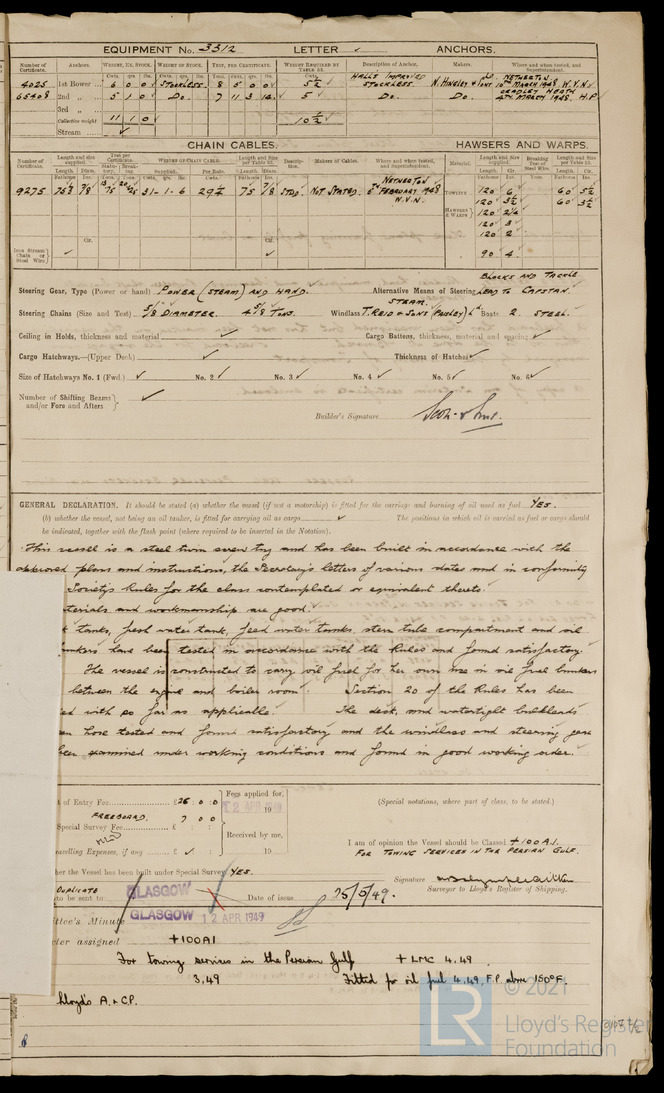 EQUIPMENT No. 3312 LETTER ✓ ANCHORS.
Number of Certificate. Anchors. Weight, Ex. Stock. Weight of Stock. Test, per Certificate. Weight Required by Table 22. Description of Anchor. Makers. Where and when tested, and Superintendent.
Cwts. qrs. lbs.
4025 1st Bower 6 0 0 Stockless 8 5 0 0 5½ HALLS IMPROVED STOCKLESS. N. HINGLEY & SONS LTD. NETHERTON 10TH MARCH 1948 W.V.N.
65408 2nd „ 5 1 0 Do. 7 11 3 14 5 Do. Do. CRADLEY HEATH 4TH MARCH 1948. H.P.
3rd „
Collective weight 11 1 0 10½
Stream ✓
CHAIN CABLES. HAWSERS AND WARPS.
Number of Certificate. Length and size supplied. Test per Certificate. Weight of Chain Cable. Length and Size per Table 22. Description. Makers of Cables. Where and when tested, and Superintendent. Material. Length and Size supplied. Breaking Test of Steel Wire. Length and size per Table 22.
9275 75½ 7/8 31-1-6 29¼ 75 7/8 STUD NOT STATED. NETHERTON 5TH FEBRUARY 1948 W.V.N.
TOWLINE 120 6 60 5½
120 3½ 60 3½
HAWSERS & WARPS 120 2¼
120 3
120 2
Iron Stream Chain or Steel Wire ✓ Cir. ✓ 90 4
Steering Gear, Type (Power or hand) POWER (STEAM) AND HAND. Alternative Means of Steering BLOCKS AND TACKLE LEAD TO CAPSTAN.
Steering Chains (Size and Test) 5/8 DIAMETER. 4 5/8 TONS. Windlass STEAM. T. REID & SONS (PAISLEY) LTD Boats 2. STEEL.
Ceiling in Holds, thickness and material ✓ Cargo Battens, thickness, material and spacing ✓
Cargo Hatchways.—(Upper Deck) ✓ Thickness of Hatches ✓
Size of Hatchways No. 1 (Fwd.) ✓ No. 2 ✓ No. 3 ✓ No. 4 ✓ No. 5 ✓ No. 6 ✓
Number of Shifting Beams and/or Fore and Afters } ✓
Builder's Signature Scott & Sons.
GENERAL DECLARATION. It should be stated (a) whether the vessel (if not a motorship) is fitted for the carriage and burning of oil used as fuel YES.
(b) whether the vessel, not being an oil tanker, is fitted for carrying oil as cargo ✓ The positions in which oil is carried as fuel or cargo should
be indicated, together with the flash point (where required to be inserted in the Notation).
This vessel is a steel twin screw tug and has been built in accordance with the
approved plans and instructions, the Secretary's letters of various dates and in conformity
Society's Rules for the class contemplated or equivalent thereto.
terials and workmanship are good.
k tanks, fresh water tank, feed water tanks, stern tube compartment and oil
unkers have been tested in accordance with the Rules and found satisfactory.
The vessel is constructed to carry oil fuel for her own use in oil fuel bunkers
between the engine and boiler room. Section 20 of the Rules has been
ed with so far as applicable. The deck, and watertight bulkheads
en hose tested and found satisfactory and the windlass and steering gear
been examined under working conditions and found in good working order.
t of Entry Fee £26 : 0 : 0
FREEBOARD. 7 0 0
Special Survey Fee £ : :
ravelling Expenses, if any £ ✓ :
Fees applied for,
12 APR 1949
19
Received by me,
19
(Special notations, where part of class, to be stated.)
I am of opinion the Vessel should be Classed +100A1.
FOR TOWING SERVICES IN THE PERSIAN GULF.
her the Vessel has been built under Special Survey YES.
Signature
Surveyor to Lloyd's Register of Shipping.
DUPLICATE
to be sent to GLASGOW Date of issue 25/5/49.
ittee's Minute GLASGOW 12 APR 1949
cter assigned +100A1
For towing services in the Persian Gulf + LMC 4.49
3.49 Fitted for oil fuel 4.49, F.P. above 150°F.
Lloyd's A. & C.P.
© 2021
LR
Lloyd's Register
Foundation